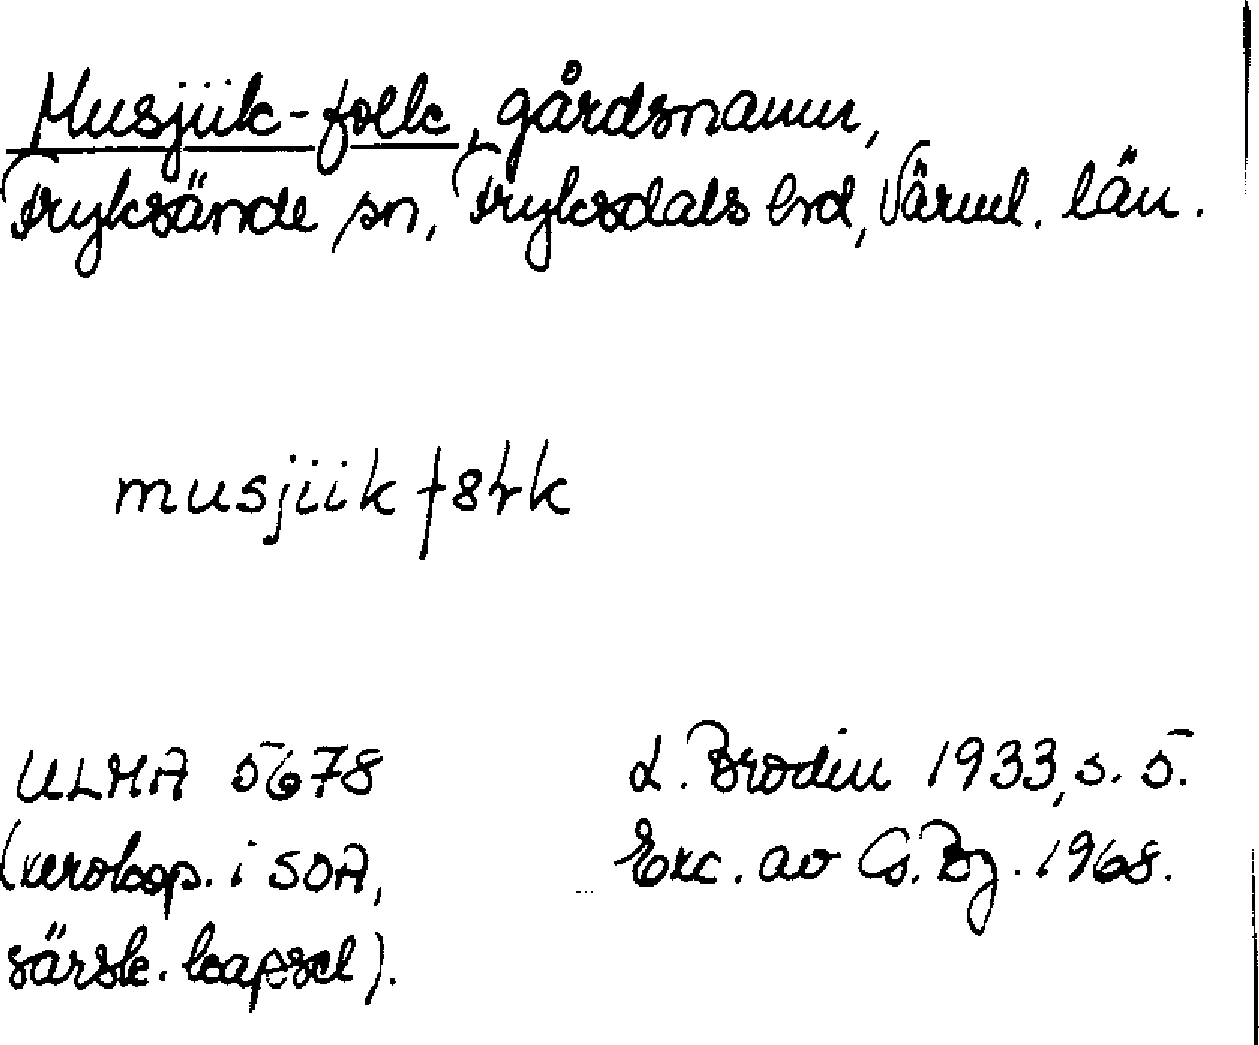 Musjiik-folk, gårdsnamn,
Fryksände sn, Fryksdals hrd, Värml. län.
musjiik
ULMA 5678
L. Brodin 1933, s. 5.
(xerokop. i SOA,
Exc. av G. Bj. 1968.
särsk. kapsel).